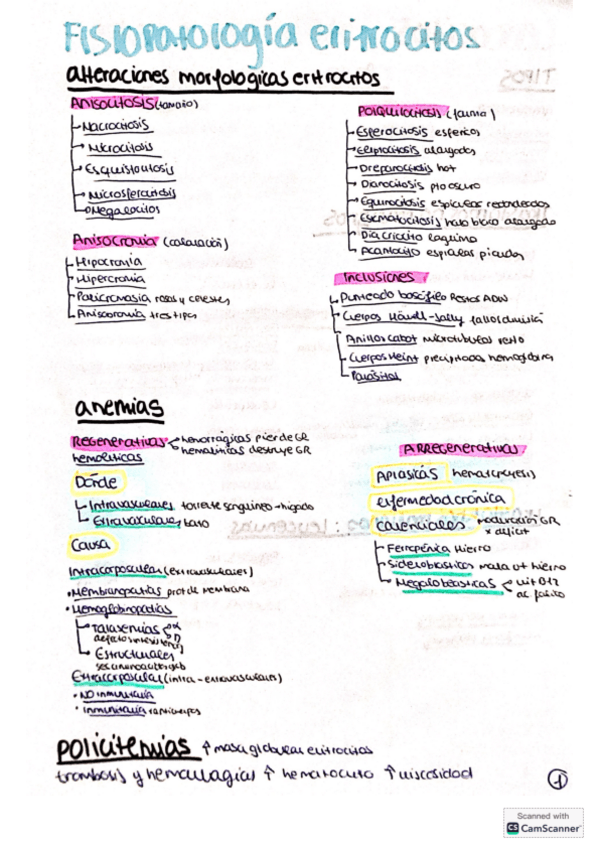 Fisiopatología eritrocitos
alteraciones morfologicas eritrocitos
Anisocitosis (tamaño)
Macrocitosis
Microcitosis
Esquistocitosis
Microsferocitosis
Megalocitos
Anisocromia (coloración)
Hipocromía
Hipercromia
Policromasia rosas y celestes
Anisocromia tres tipos
Poiquilocitosis (forma)
Esferocitosis esfericos
Eliptocitosis alargados
Drepanocitosis hoz
Dianocitosis pto oscuro
Equinocitosis espiculas redondeadas
Esomatocitosis halo blanco alargado
Diacriocito lagrima
Acantocito espiculas picudas
Inclusiones
Punteado basófilo Restos ADN
Cuerpos Howell-Jolly
Anillos cabot microtubulos resto
Cuerpos Heinz precipitados hemoglobina
Parásitos
anemias
Regenerativas
hemorrágicas pierde GR
hemolíticas destruye GR
hemolíticas
Dónde
Intravasculares torrente sanguineo-higado
Extravasculares bazo
Causa
Intracorpuscular (extravasculares)
• Membranopatias prot de membrana
• Hemoglobinopatías
Talasemias
Estructurales
Extracorpuscular (intra-extravasculares)
• No inmunitaria
• Inmunitaria anticuerpos
ARREGENERATIVAS
APLASICAS hematopoyesis
enfermedad crónica
carenciales maduración GR
x déficit
Ferropénica Hierro
Sideroblasticas mala ut hierro
Megaloblasticas vit B12
ac folico
policitemias ↑ masa globular eritrocitos
trombosis y hemorragias ↑ hematocrito ↑ viscosidad
1
Scanned with
CS CamScanner